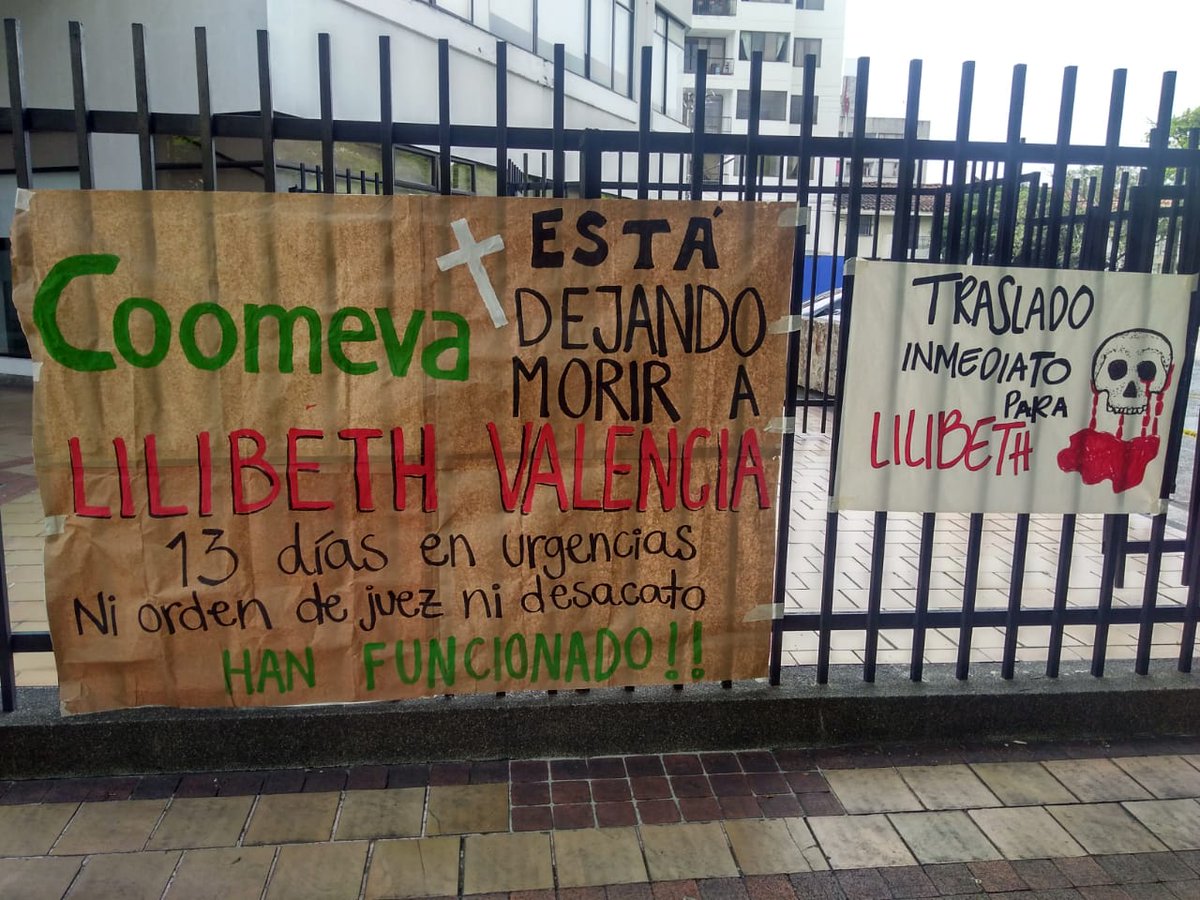 Coomeva
ESTÁ
DEJANDO
MORIR A
LILIBETH VALENCIA
13 días en urgencias
Ni orden de juez ni desacato
HAN FUNCIONADO!!
TRASLADO
INMEDIATO
PARA
LILIBETH